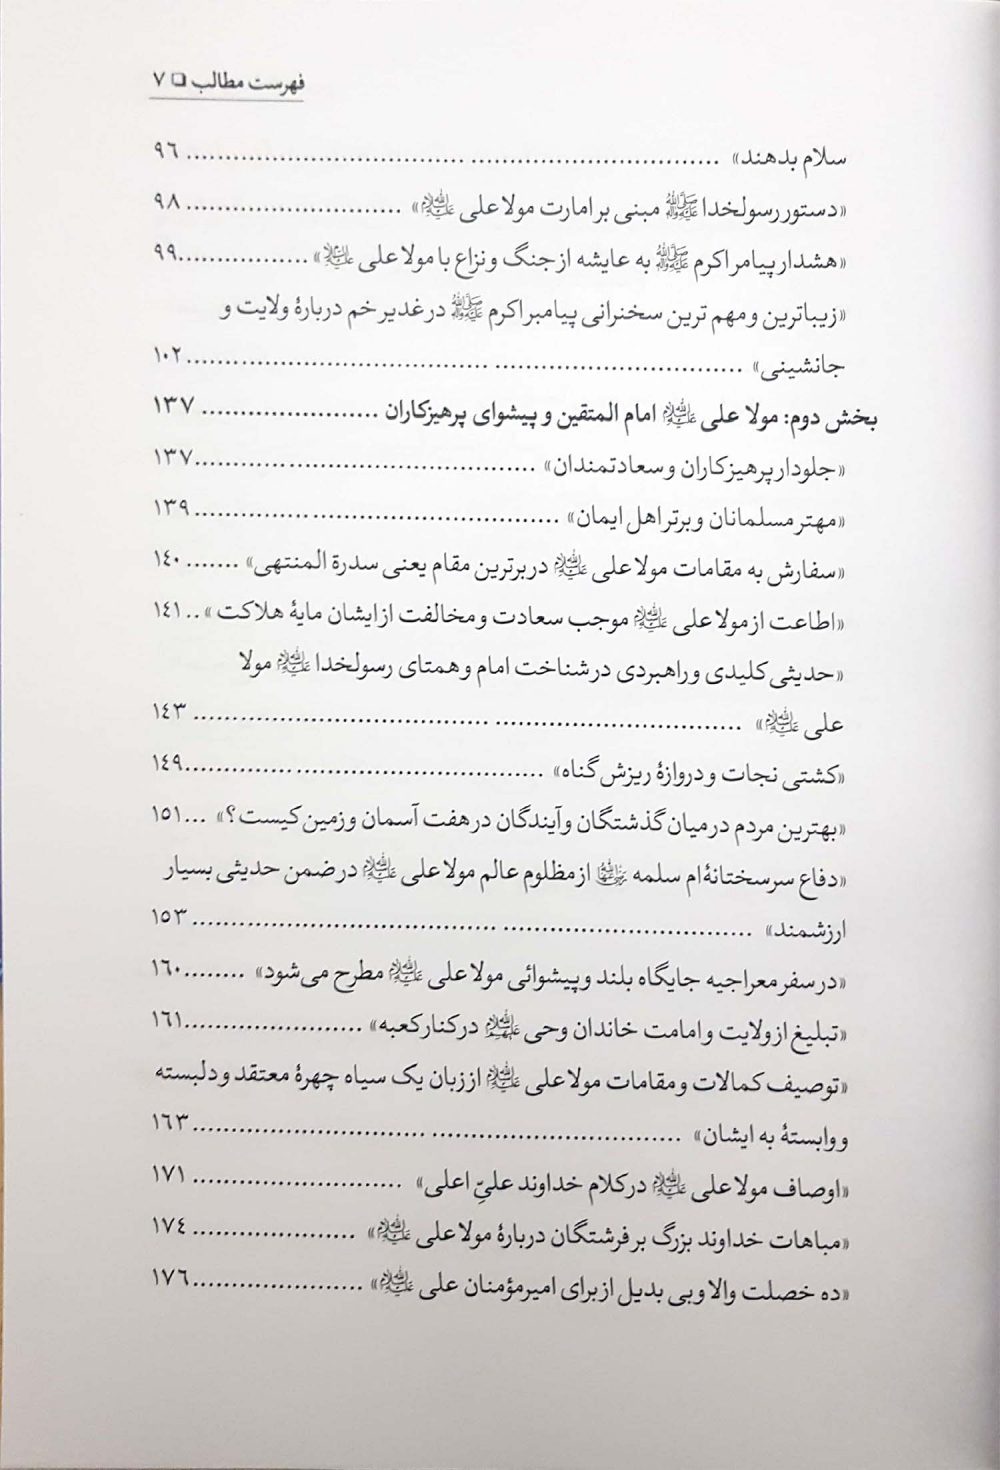 فهرست مطالب □ ۷
سلام بدهند» ................................................................ ۹۶
«دستور رسولخدا ﷺ مبنی بر امارت مولا علی علیه‌السلام» ............................ ۹۸
«هشدار پیامر اکرم ﷺ به عایشه از جنگ و نزاع با مولا علی علیه‌السلام» ................. ۹۹
«زیباترین و مهم ترین سخنرانی پیامبر اکرم ﷺ در غدیر خم دربارهٔ ولایت و
جانشینی» ................................................................ ۱۰۲
بخش دوم: مولا علی علیه‌السلام امام المتقین و پیشوای پرهیزکاران ....................... ۱۳۷
«جلودار پرهیزکاران و سعادتمندان» ............................................ ۱۳۷
«مهتر مسلمانان و برتر اهل ایمان» ............................................... ۱۳۹
«سفارش به مقامات مولا علی علیه‌السلام در برترین مقام یعنی سدرة المنتهی» ....... ۱٤۰
«اطاعت از مولا علی علیه‌السلام موجب سعادت و مخالفت از ایشان مایهٔ هلاکت» .. ۱٤۱
«حدیثی کلیدی و راهبردی در شناخت امام و همتای رسولخدا علیه‌السلام مولا
علی علیه‌السلام» ................................................................ ۱٤۳
«کشتی نجات و دروازهٔ ریزش گناه» ............................................. ۱٤۹
«بهترین مردم در میان گذشتگان و آیندگان در هفت آسمان و زمین کیست؟» ... ۱۵۱
«دفاع سرسختانهٔ ام سلمه رضی‌الله‌عنها از مظلوم عالم مولا علی علیه‌السلام در ضمن حدیثی بسیار
ارزشمند» ................................................................ ۱۵۳
«در سفر معراجیه جایگاه بلند و پیشوائی مولا علی علیه‌السلام مطرح می‌شود» ........ ۱۶۰
«تبلیغ از ولایت و امامت خاندان وحی علیهم‌السلام در کنار کعبه» ....................... ۱۶۱
«توصیف کمالات و مقامات مولا علی علیه‌السلام از زبان یک سیاه چهرهٔ معتقد و دلبسته
و وابستهٔ به ایشان» ............................................................ ۱۶۳
«اوصاف مولا علی علیه‌السلام در کلام خداوند علیِّ اعلی» ............................ ۱۷۱
«مباهات خداوند بزرگ بر فرشتگان دربارهٔ مولا علی علیه‌السلام» ..................... ۱۷٤
«ده خصلت والا و بی بدیل از برای امیرمؤمنان علی علیه‌السلام» ...................... ۱۷۶